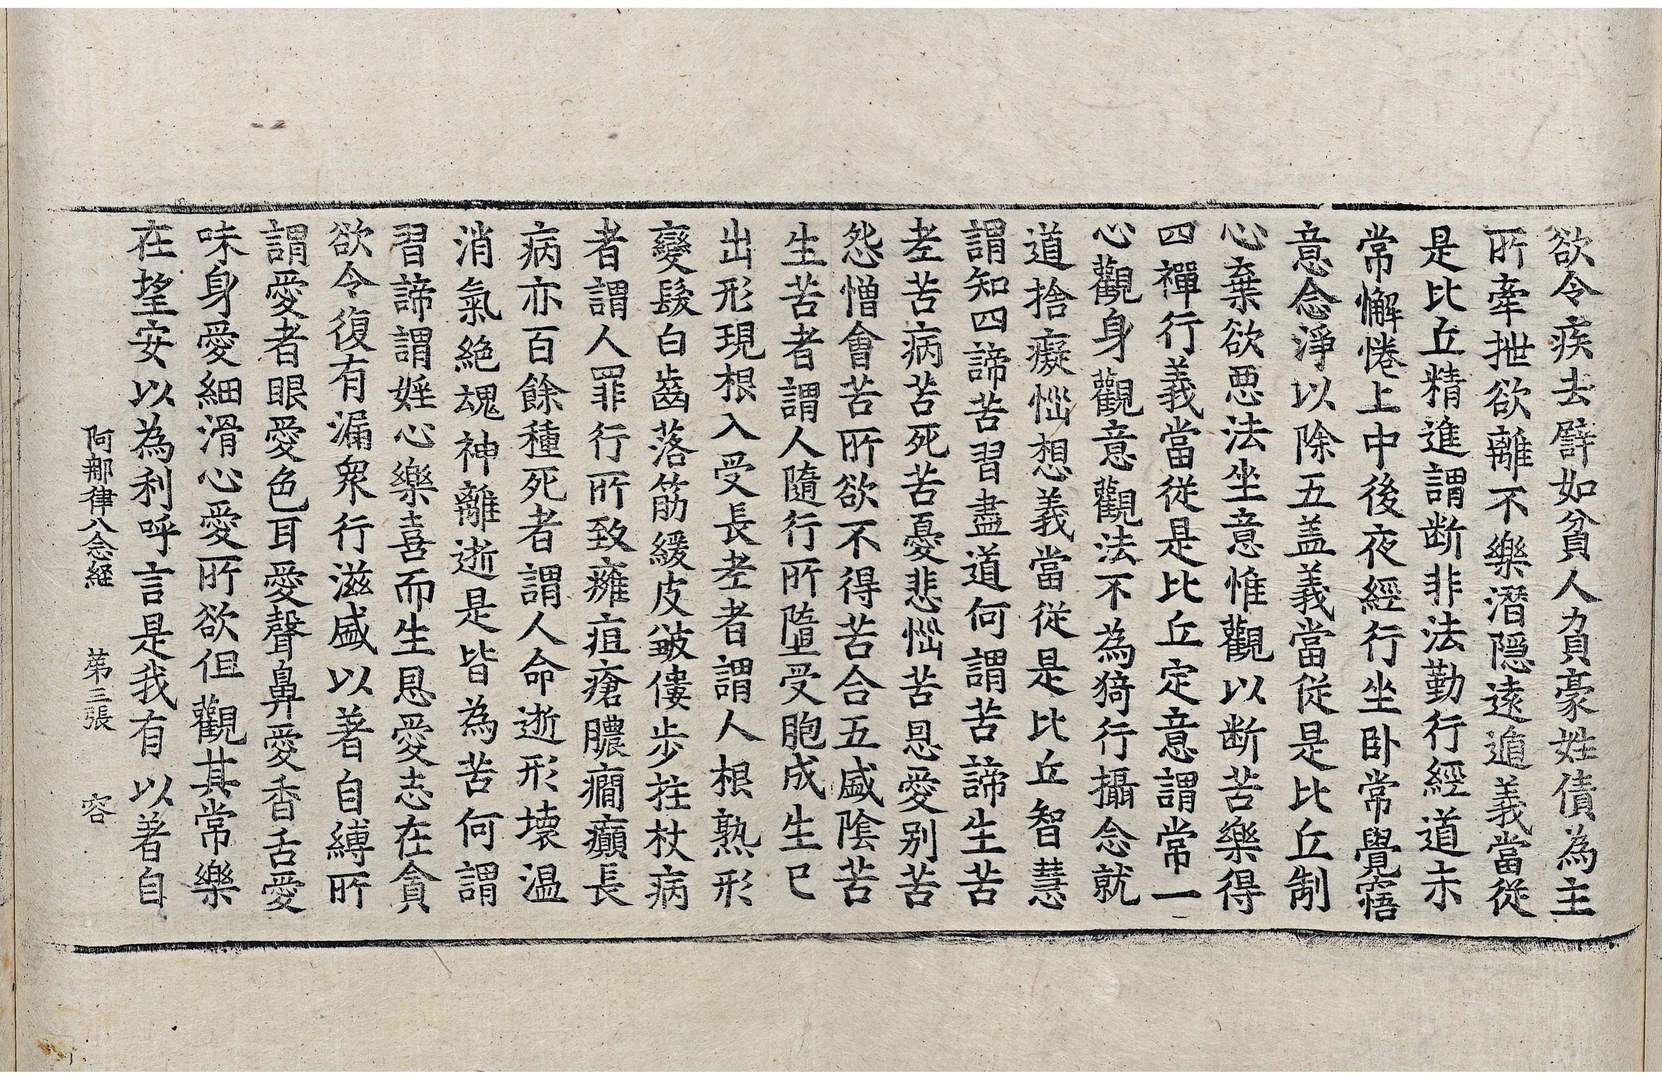 欲令疾去譬如貧人負豪姓債為主
所牽抴欲離不樂潛隱遠遁義當從
是比丘精進謂断非法勤行經道未
常懈惓上中後夜經行坐卧常覺寤
意念淨以除五盖義當從是比丘制
心棄欲悪法坐意惟觀以断苦樂得
四禪行義當從是比丘定意謂常一
心觀身觀意觀法不為猗行攝念就
道捨癡惱想義當從是比丘智慧
謂知四諦苦習盡道何謂苦諦生苦
老苦病苦死苦憂悲惱苦恩愛别苦
怨憎會苦所欲不得苦合五盛陰苦
生苦者謂人隨行所墮受胞成生已
出形現根入受長老者謂人根熟形
變髮白齒落筋緩皮皺僂步拄杖病
者謂人罪行所致癰疽瘡膿癎癲長
病亦百餘種死者謂人命逝形壊温
消氣絶魂神離逝是皆為苦何謂
習諦謂婬心樂喜而生恩愛志在貪
欲令復有漏衆行滋盛以著自縛所
謂愛者眼愛色耳愛聲鼻愛香舌愛
味身愛細滑心愛所欲但觀其常樂
在望安以為利呼言是我有以著自
阿那律八念経 苐三張 容